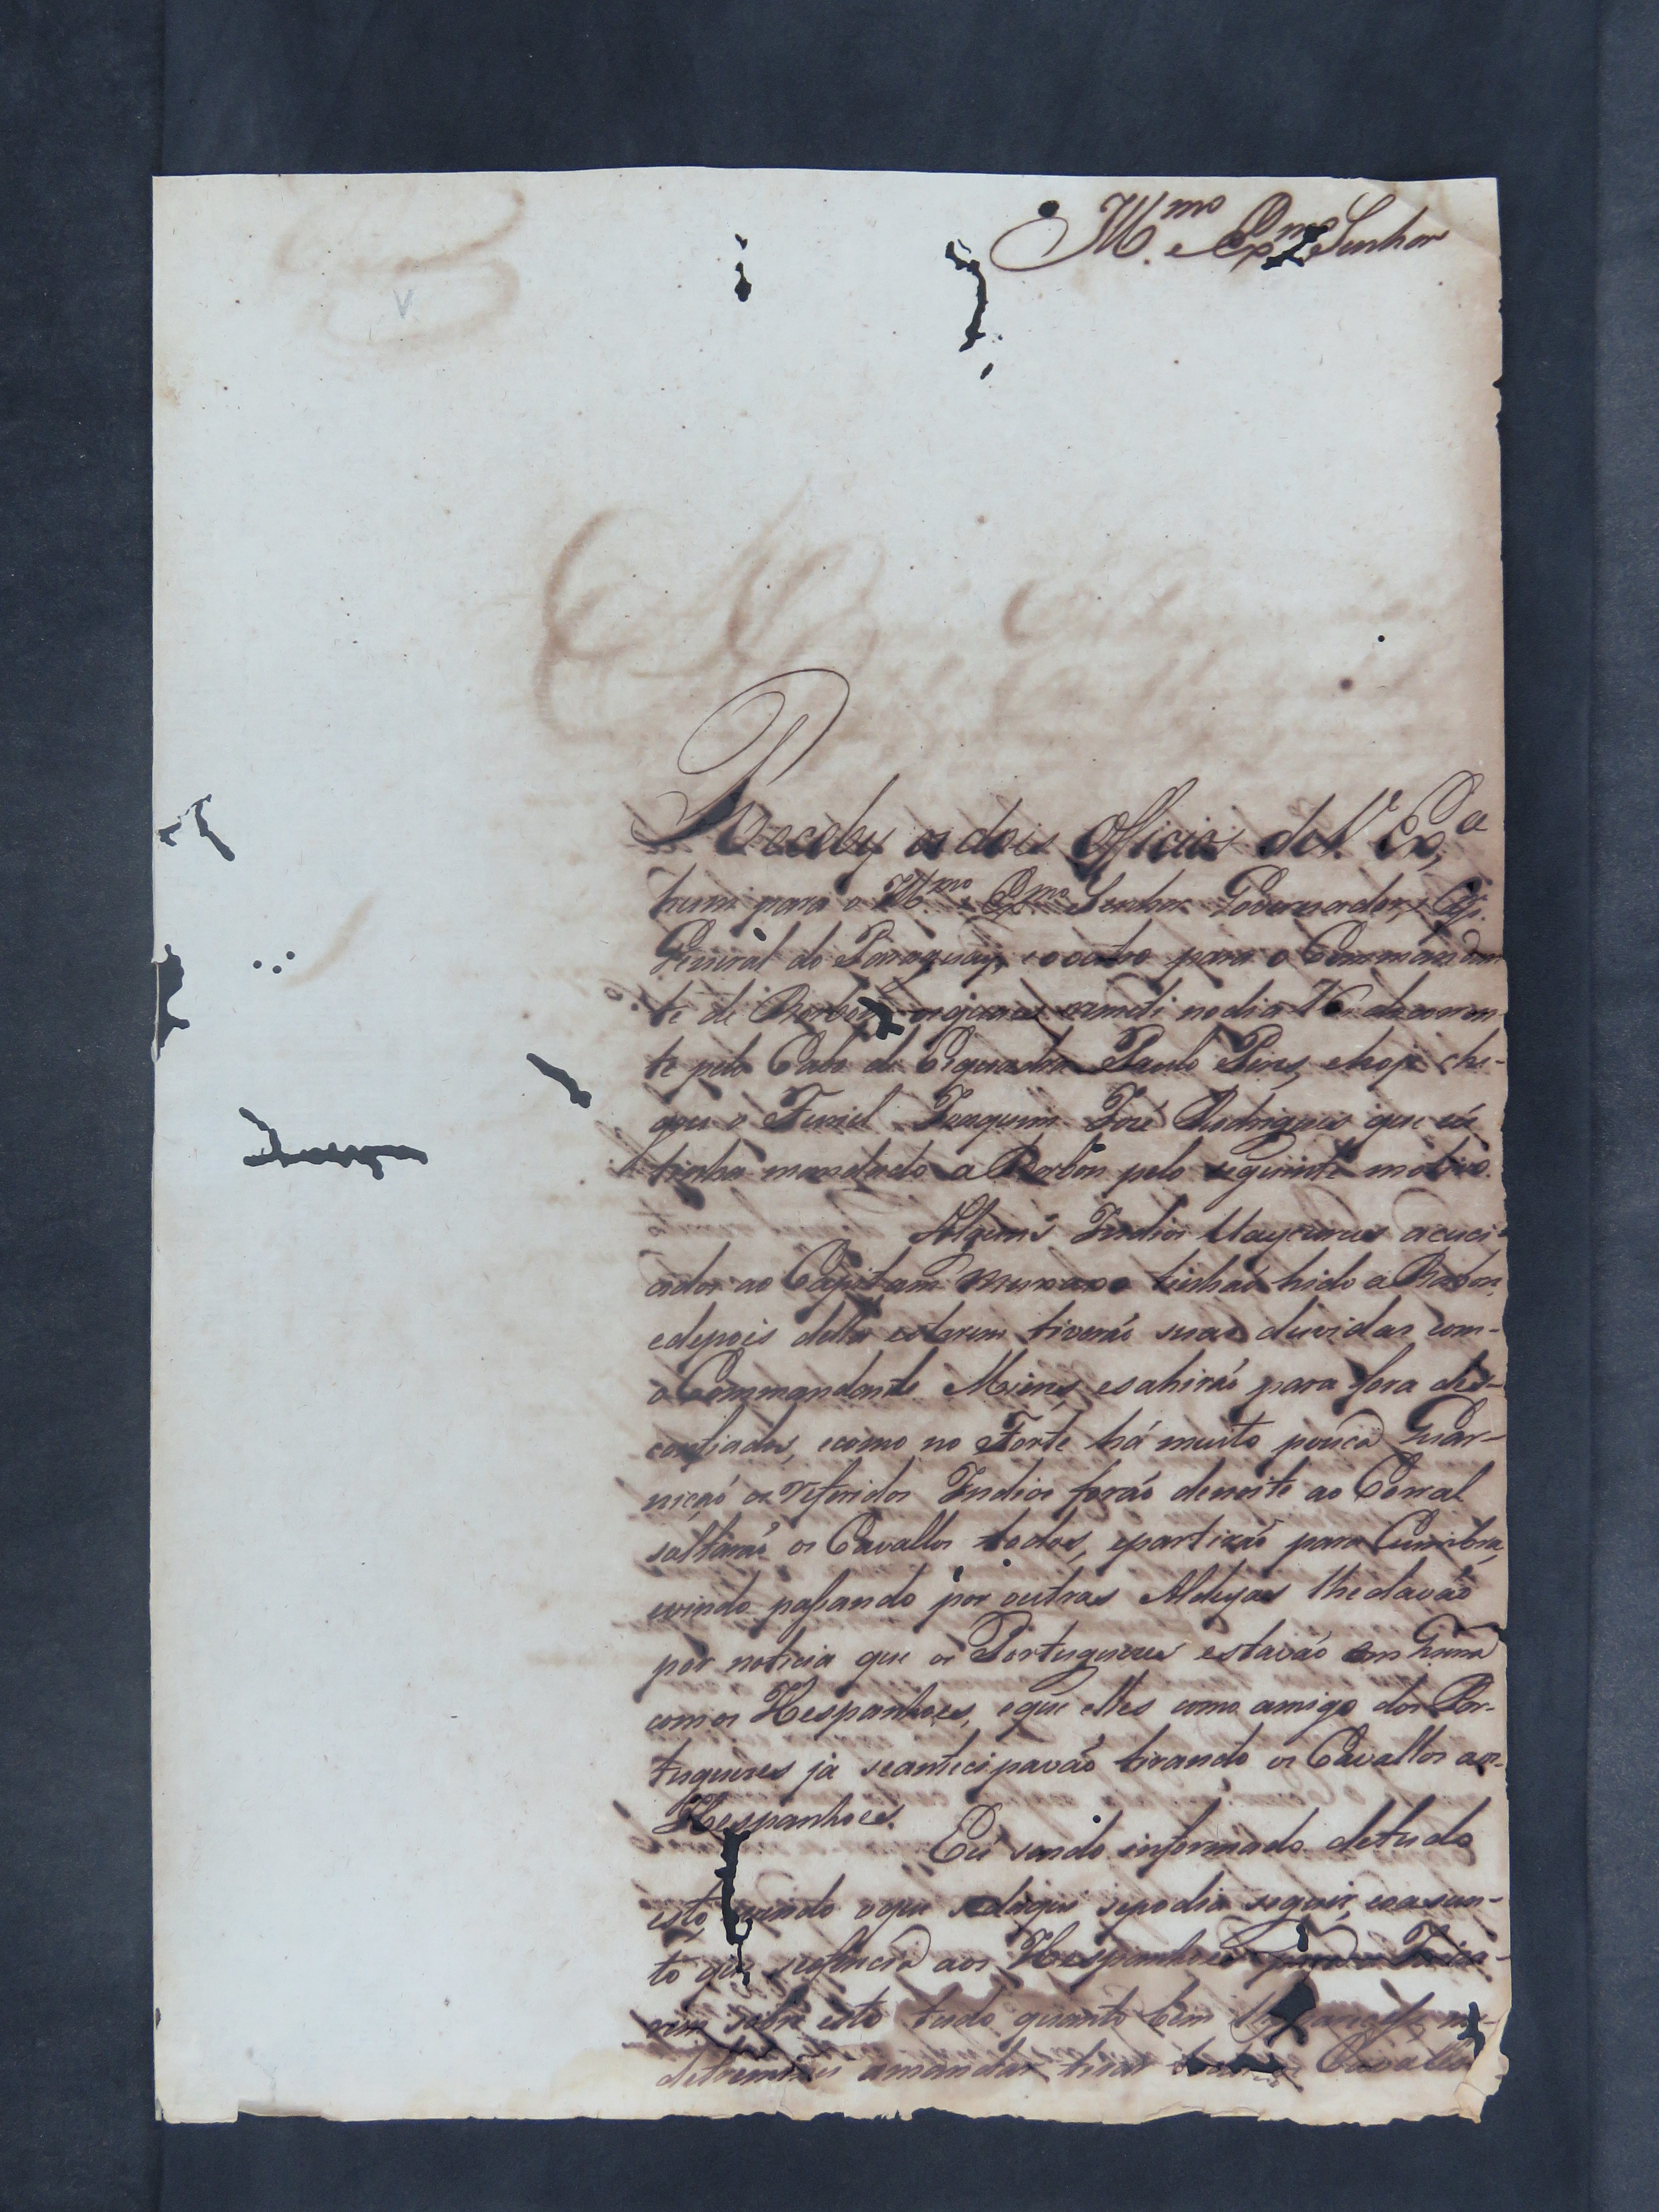 Ill.mo e Ex.mo Senhor
Recebi os dois Officios de V. Ex.a
hum para o Ill.mo e Ex.mo Senhor Governador, e Cap.
General do Paraguay, e o outro para o Comman dan
te de Borbon os quaes remeti no dia do corren
te pelo Cabo de Esquadra Paulo Pires, e hoje che-
gou o Furiel Joaquim Joze Rodrigues que eu
tinha mandado a Borbon pelo seguinte motivo.
Alguns Indios Uaycurus
ao Capitam tinhão hido a Borbon,
e depois de la estarem tiverão suas duvidas com-
o Commandante Mieres, e sahirão para fora des-
confiados, e como no Forte há muito pouca Guar-
nição os referidos Indios forão de noite ao Corral
soltarão os Cavallos todos, e partirão para Coimbra,
e vindo passando por outras Aldeyas lhe davão
por noticia que os Portuguezes estavão em Guerra
com os Hespanhoes, e que elles como amigo dos Por-
tuguezes ja se antecipavão tirando os Cavallos aos-
Hespanhoes.
Eu sendo informado de tudo
isto, vendo o que daqui se podia seguir, e o asun-
to que aos Hespanhoes para
rem sobre isto tudo quanto bem lhe
detreminei a mandar tirar Cavallos